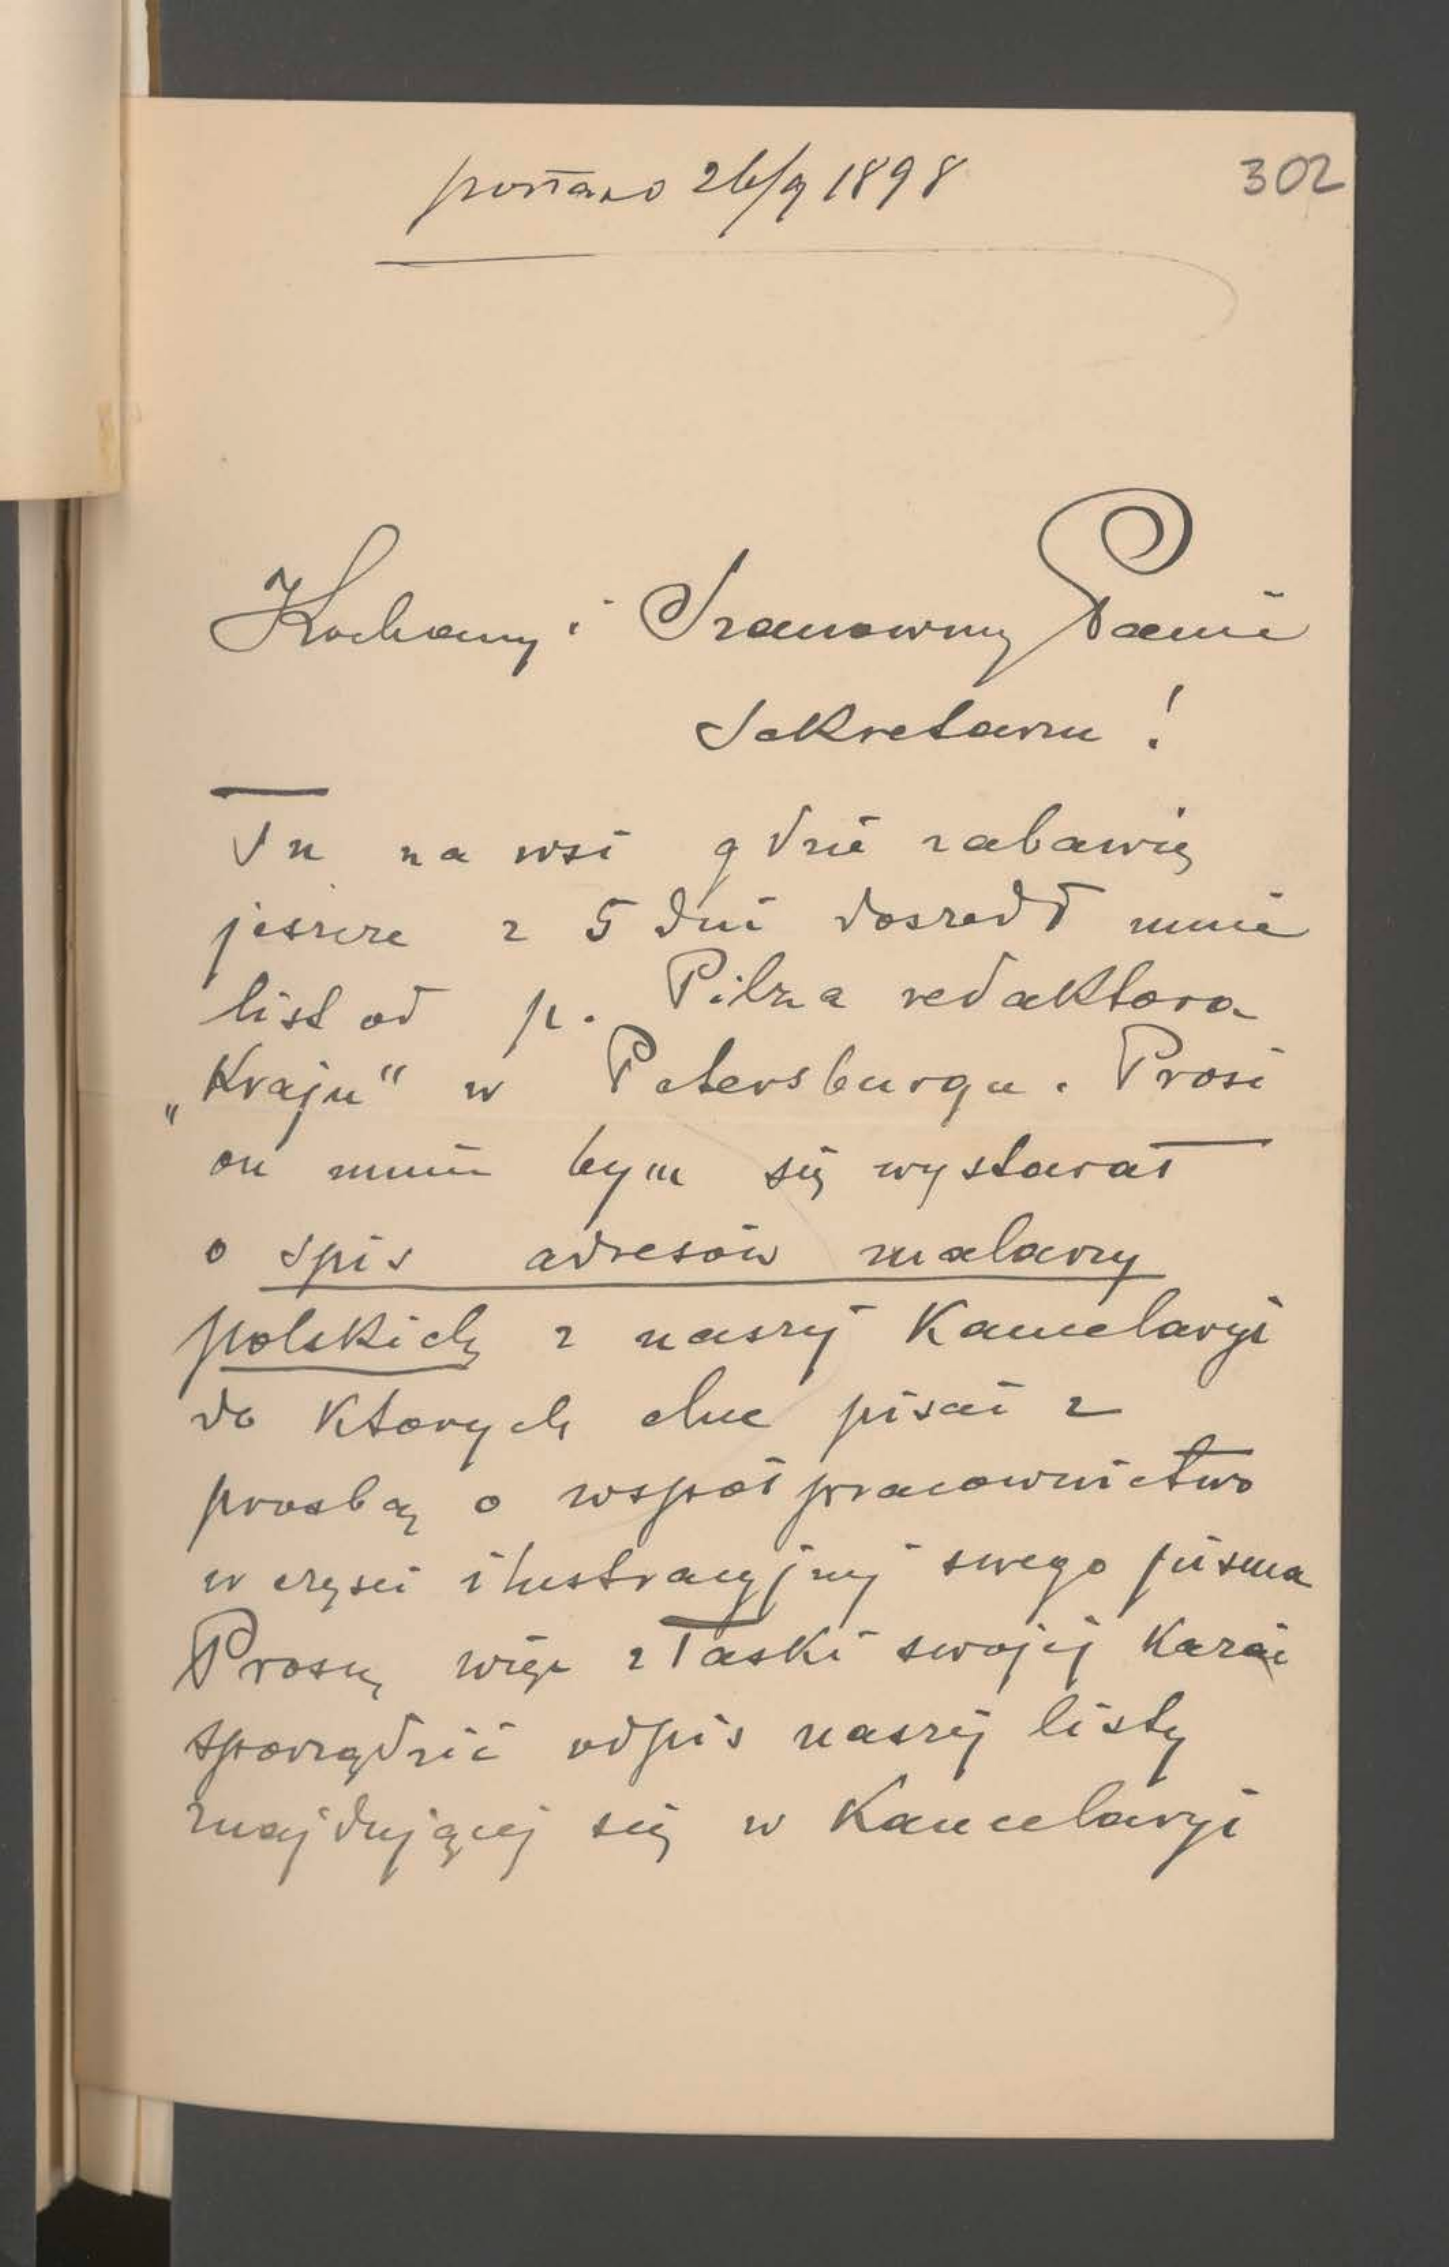 posłano 26/9 1898
302
Kochany i Szanowny Panie
Sekretarzu!
Tu na wsi gdzie zabawię
jeszcze z 5 dni doszedł mnie
list od p. Pilza redaktora
„Kraju“ w Petersburgu. Prosi
on mnie bym się wystarał
o spis adresów malarzy
polskich z naszej Kancelaryi
do ktorych chce pisać z
prosbą o wspołpracownictwo
w częsci ilustracyjnej swego pisma
Proszę więc z łaski swojej kazać
sporządzić odpis naszej listy
znajdującej się w Kancelaryi